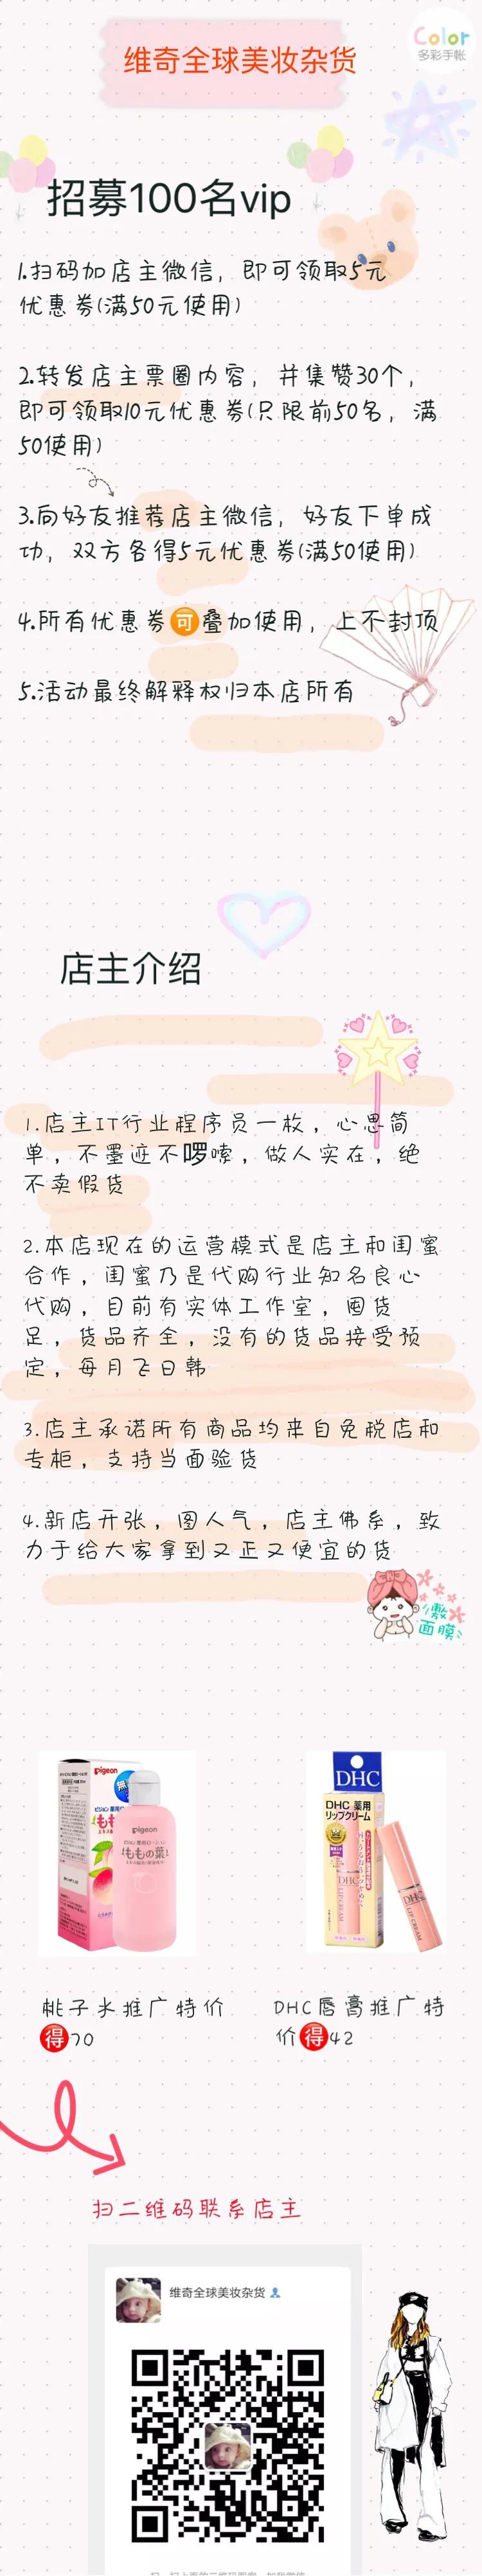 维奇全球美妆杂货
Color
多彩手帐
招募100名vip
1.扫码加店主微信，即可领取5元
优惠券(满50元使用)
2.转发店主票圈内容，并集赞30个，
即可领取10元优惠券(只限前50名，满
50使用)
3.向好友推荐店主微信，好友下单成
功，双方各得5元优惠券(满50使用)
4.所有优惠券🉑叠加使用，上不封顶
5.活动最终解释权归本店所有
店主介绍
1.店主IT行业程序员一枚，心思简
单，不墨迹不啰嗦，做人实在，绝
不卖假货
2.本店现在的运营模式是店主和闺蜜
合作，闺蜜乃是代购行业知名良心
代购，目前有实体工作室，囤货
足，货品齐全，没有的货品接受预
定，每月飞日韩
3.店主承诺所有商品均来自免税店和
专柜，支持当面验货
4.新店开张，图人气，店主佛系，致
力于给大家拿到又正又便宜的货
敷
面膜
Pigeon
Pigeon
ももの葉
DHC
DHC 薬用
リップクリーム
DHC
LIP CREAM
桃子水推广特价
🉐70
DHC唇膏推广特
价🉐42
扫二维码联系店主
维奇全球美妆杂货